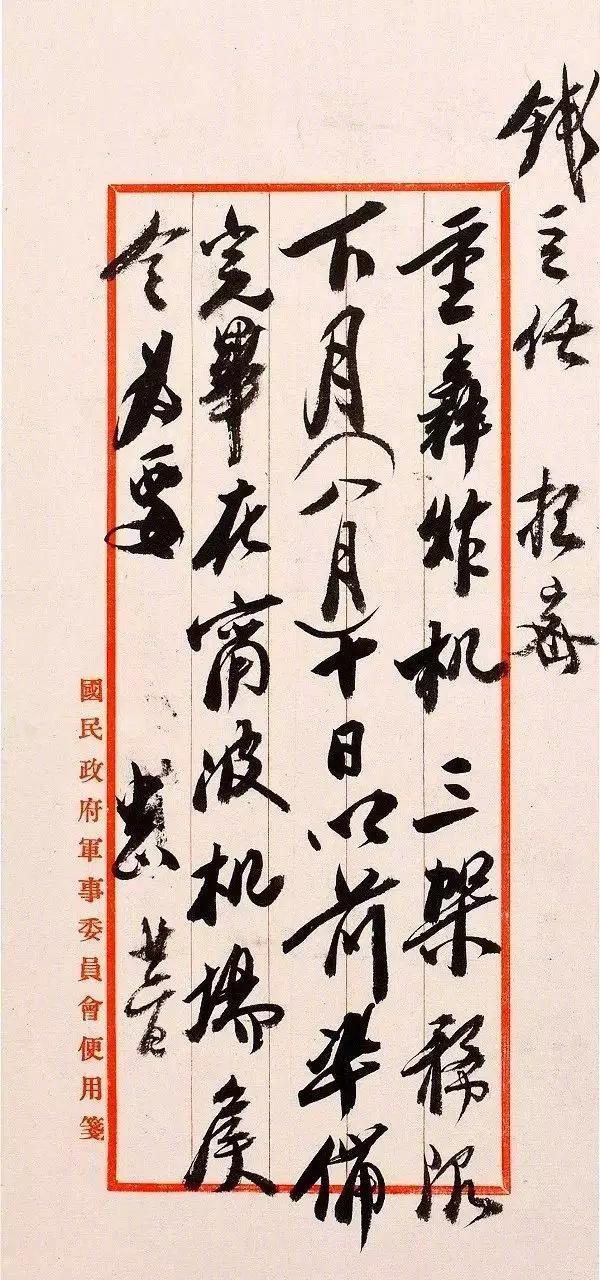 錢主任
重轟炸机三架務限
下月(八月)十日以前準備
完畢在甯波机場矦
令為要 中正
國民政府軍事委員會便用箋